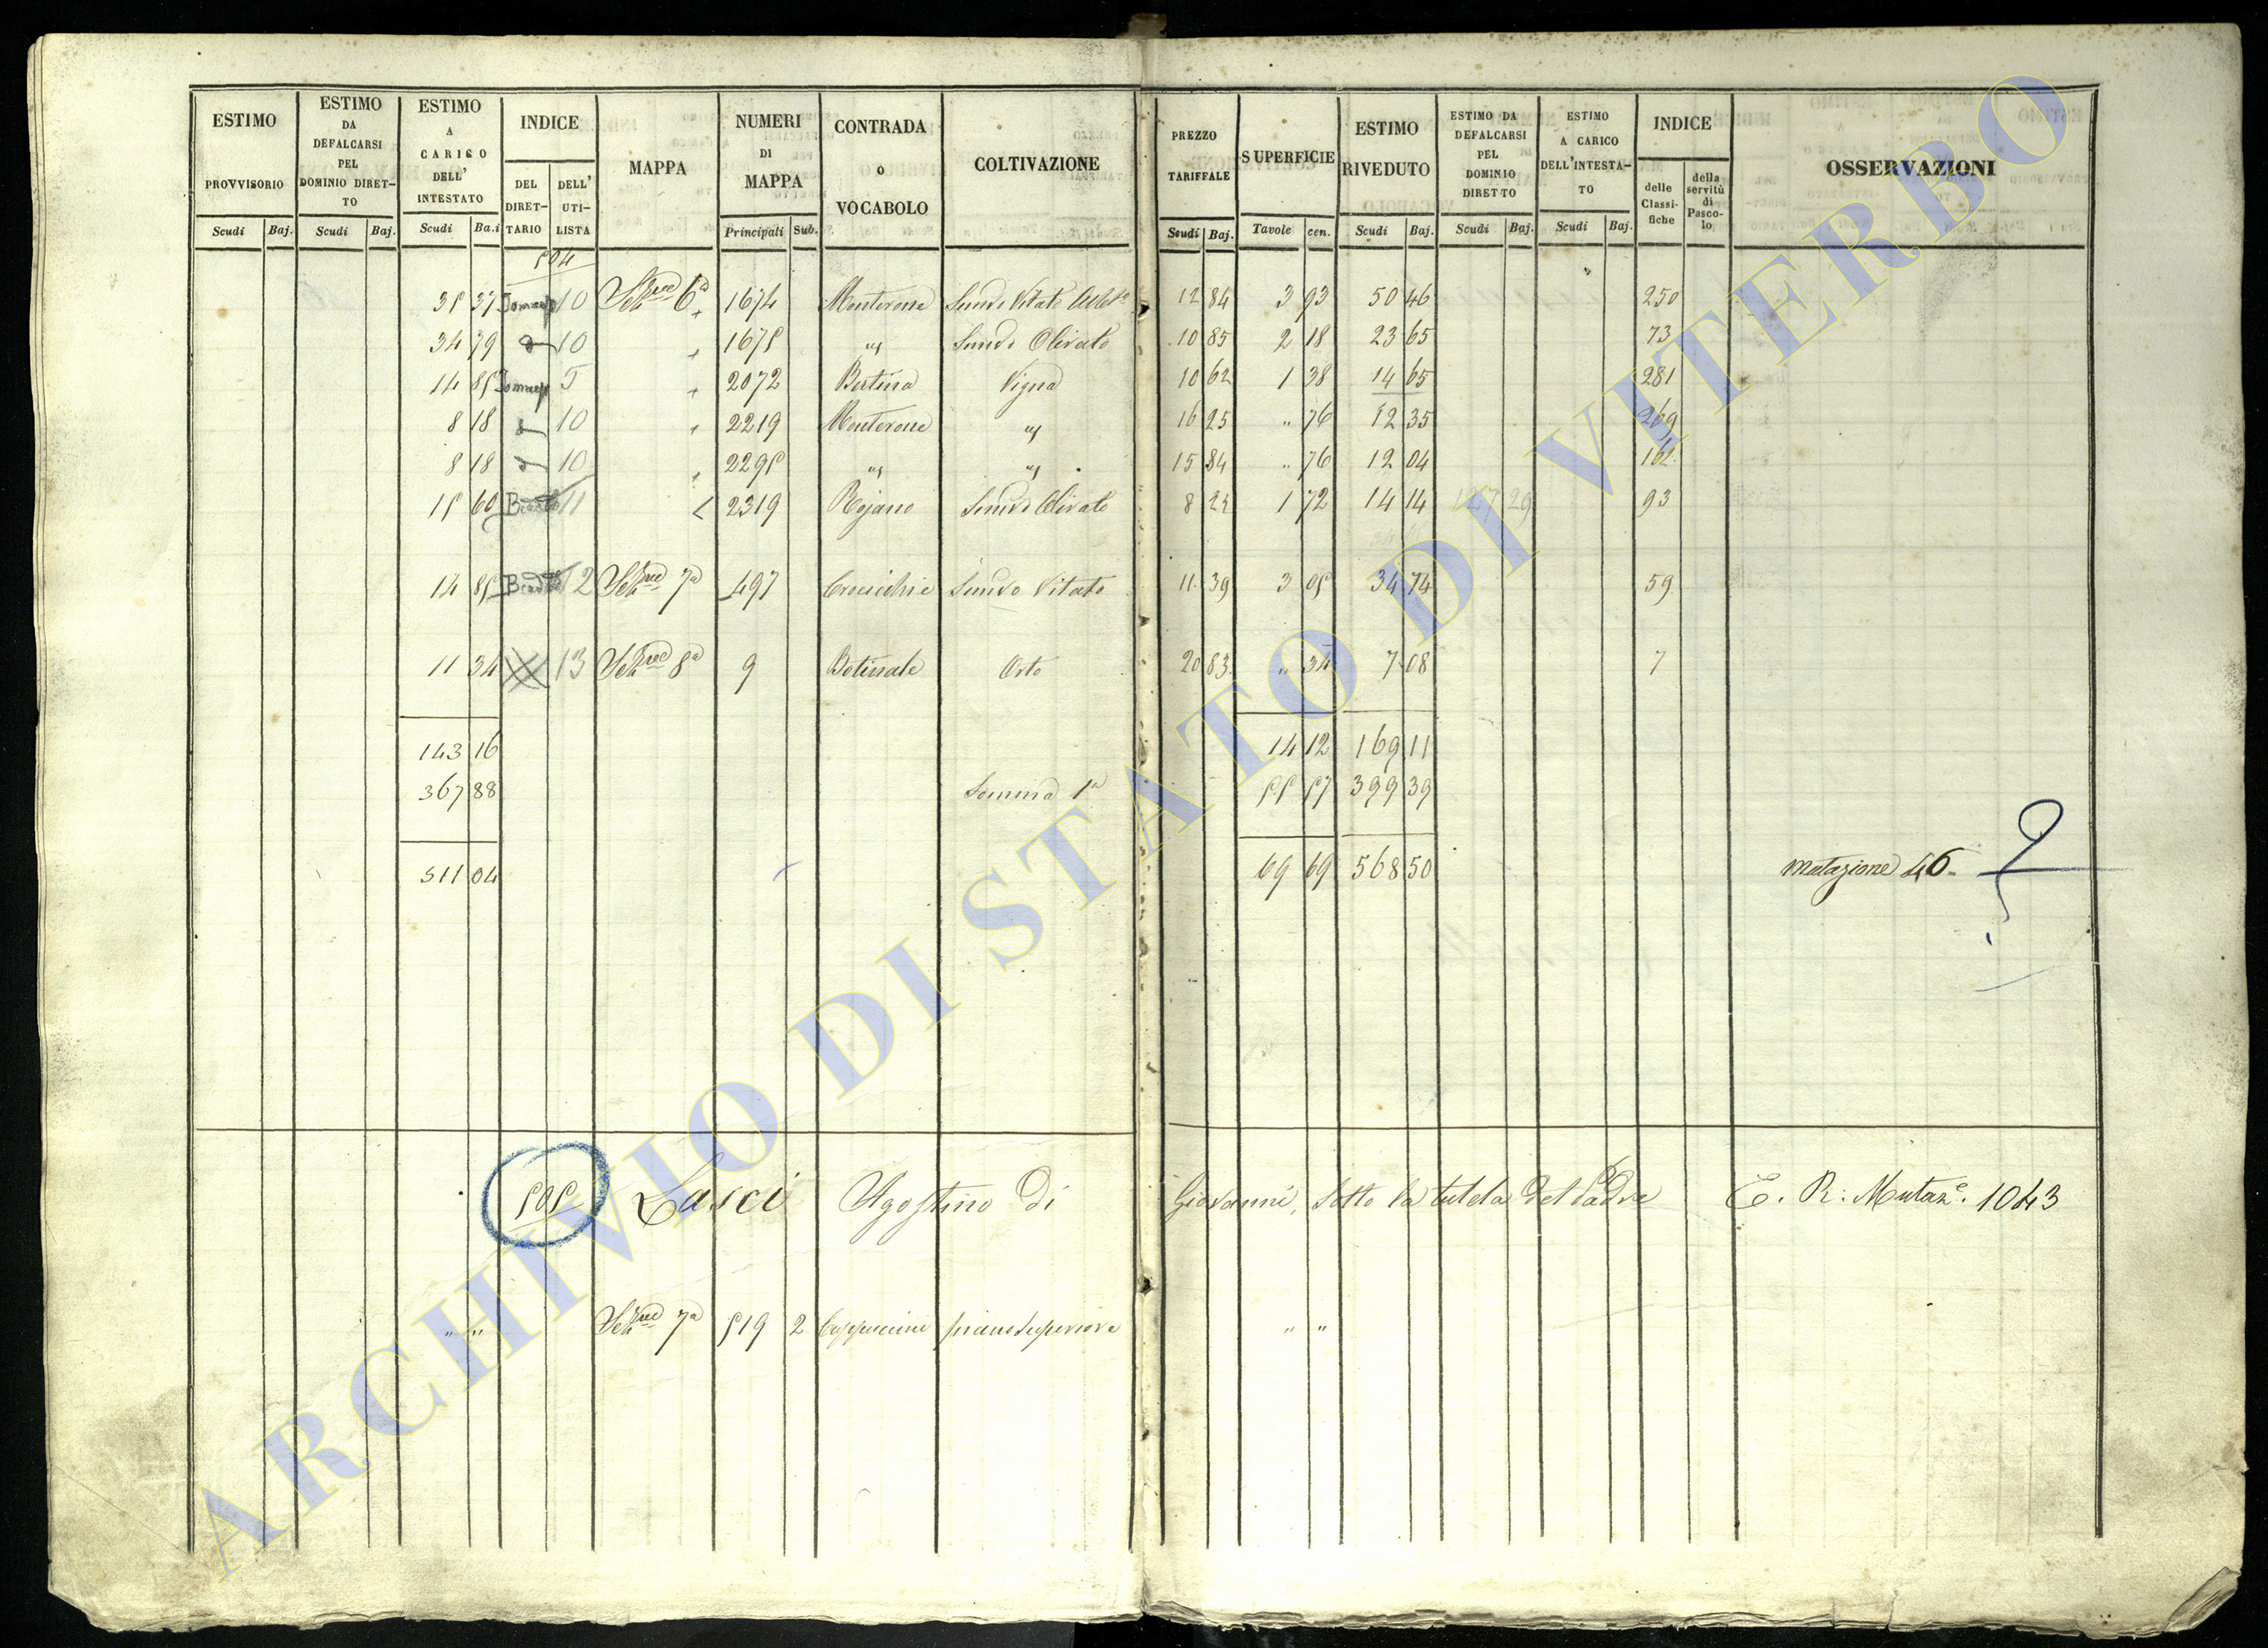 ESTIMO PROVVISORIO Scudi Baj.
ESTIMO DA DEFALCARSI PEL DOMINIO DIRET-TO Scudi Baj.
ESTIMO A CARICO DELL' INTESTATO Scudi Ba.i
INDICE DEL DIRET-TARIO DELL' UTI-LISTA
MAPPA
NUMERI DI MAPPA Principali Sub.
CONTRADA o VOCABOLO
COLTIVAZIONE
PREZZO TARIFFALE Scudi Baj.
SUPERFICIE Tavole cen.
ESTIMO RIVEDUTO Scudi Baj.
ESTIMO DA DEFALCARSI PEL DOMINIO DIRETTO Scudi Baj.
ESTIMO A CARICO DELL'INTESTA-TO Scudi Baj.
INDICE delle Classi-fiche della servitù di Pasco-lo
OSSERVAZIONI
504
35 37 10 6a 1674 Monterone 12 84 3 93 50 46 250
34 79 10 1675 " Olivato 10 85 2 18 23 65 73
14 85 5 2072 Bertina Vigna 10 62 1 38 14 65 281
8 18 10 2219 Monterone " 16 25 " 76 12 35 269
8 18 10 2295 " " 15 84 " 76 12 04 162
15 60 11 2319 Rojano Olivato 8 22 1 72 14 14 127 29 93
14 85 12 7a 497 Crocicchie Vitato 11 39 3 05 34 74 59
11 34 13 8a 9 Botinale Orto 20 83 " 34 7 08 7
143 16 14 12 169 11
367 88 Somma 1a 55 57 399 39
511 04 69 69 568 50 mutazione 46
505 Lasci Agostino di Giovanni, sotto la tutela del Padre E. R: Mutaz.e 1043
" " 7a 519 2 Cappuccini piano superiore " "
ARCHIVIO DI STATO DI VITERBO